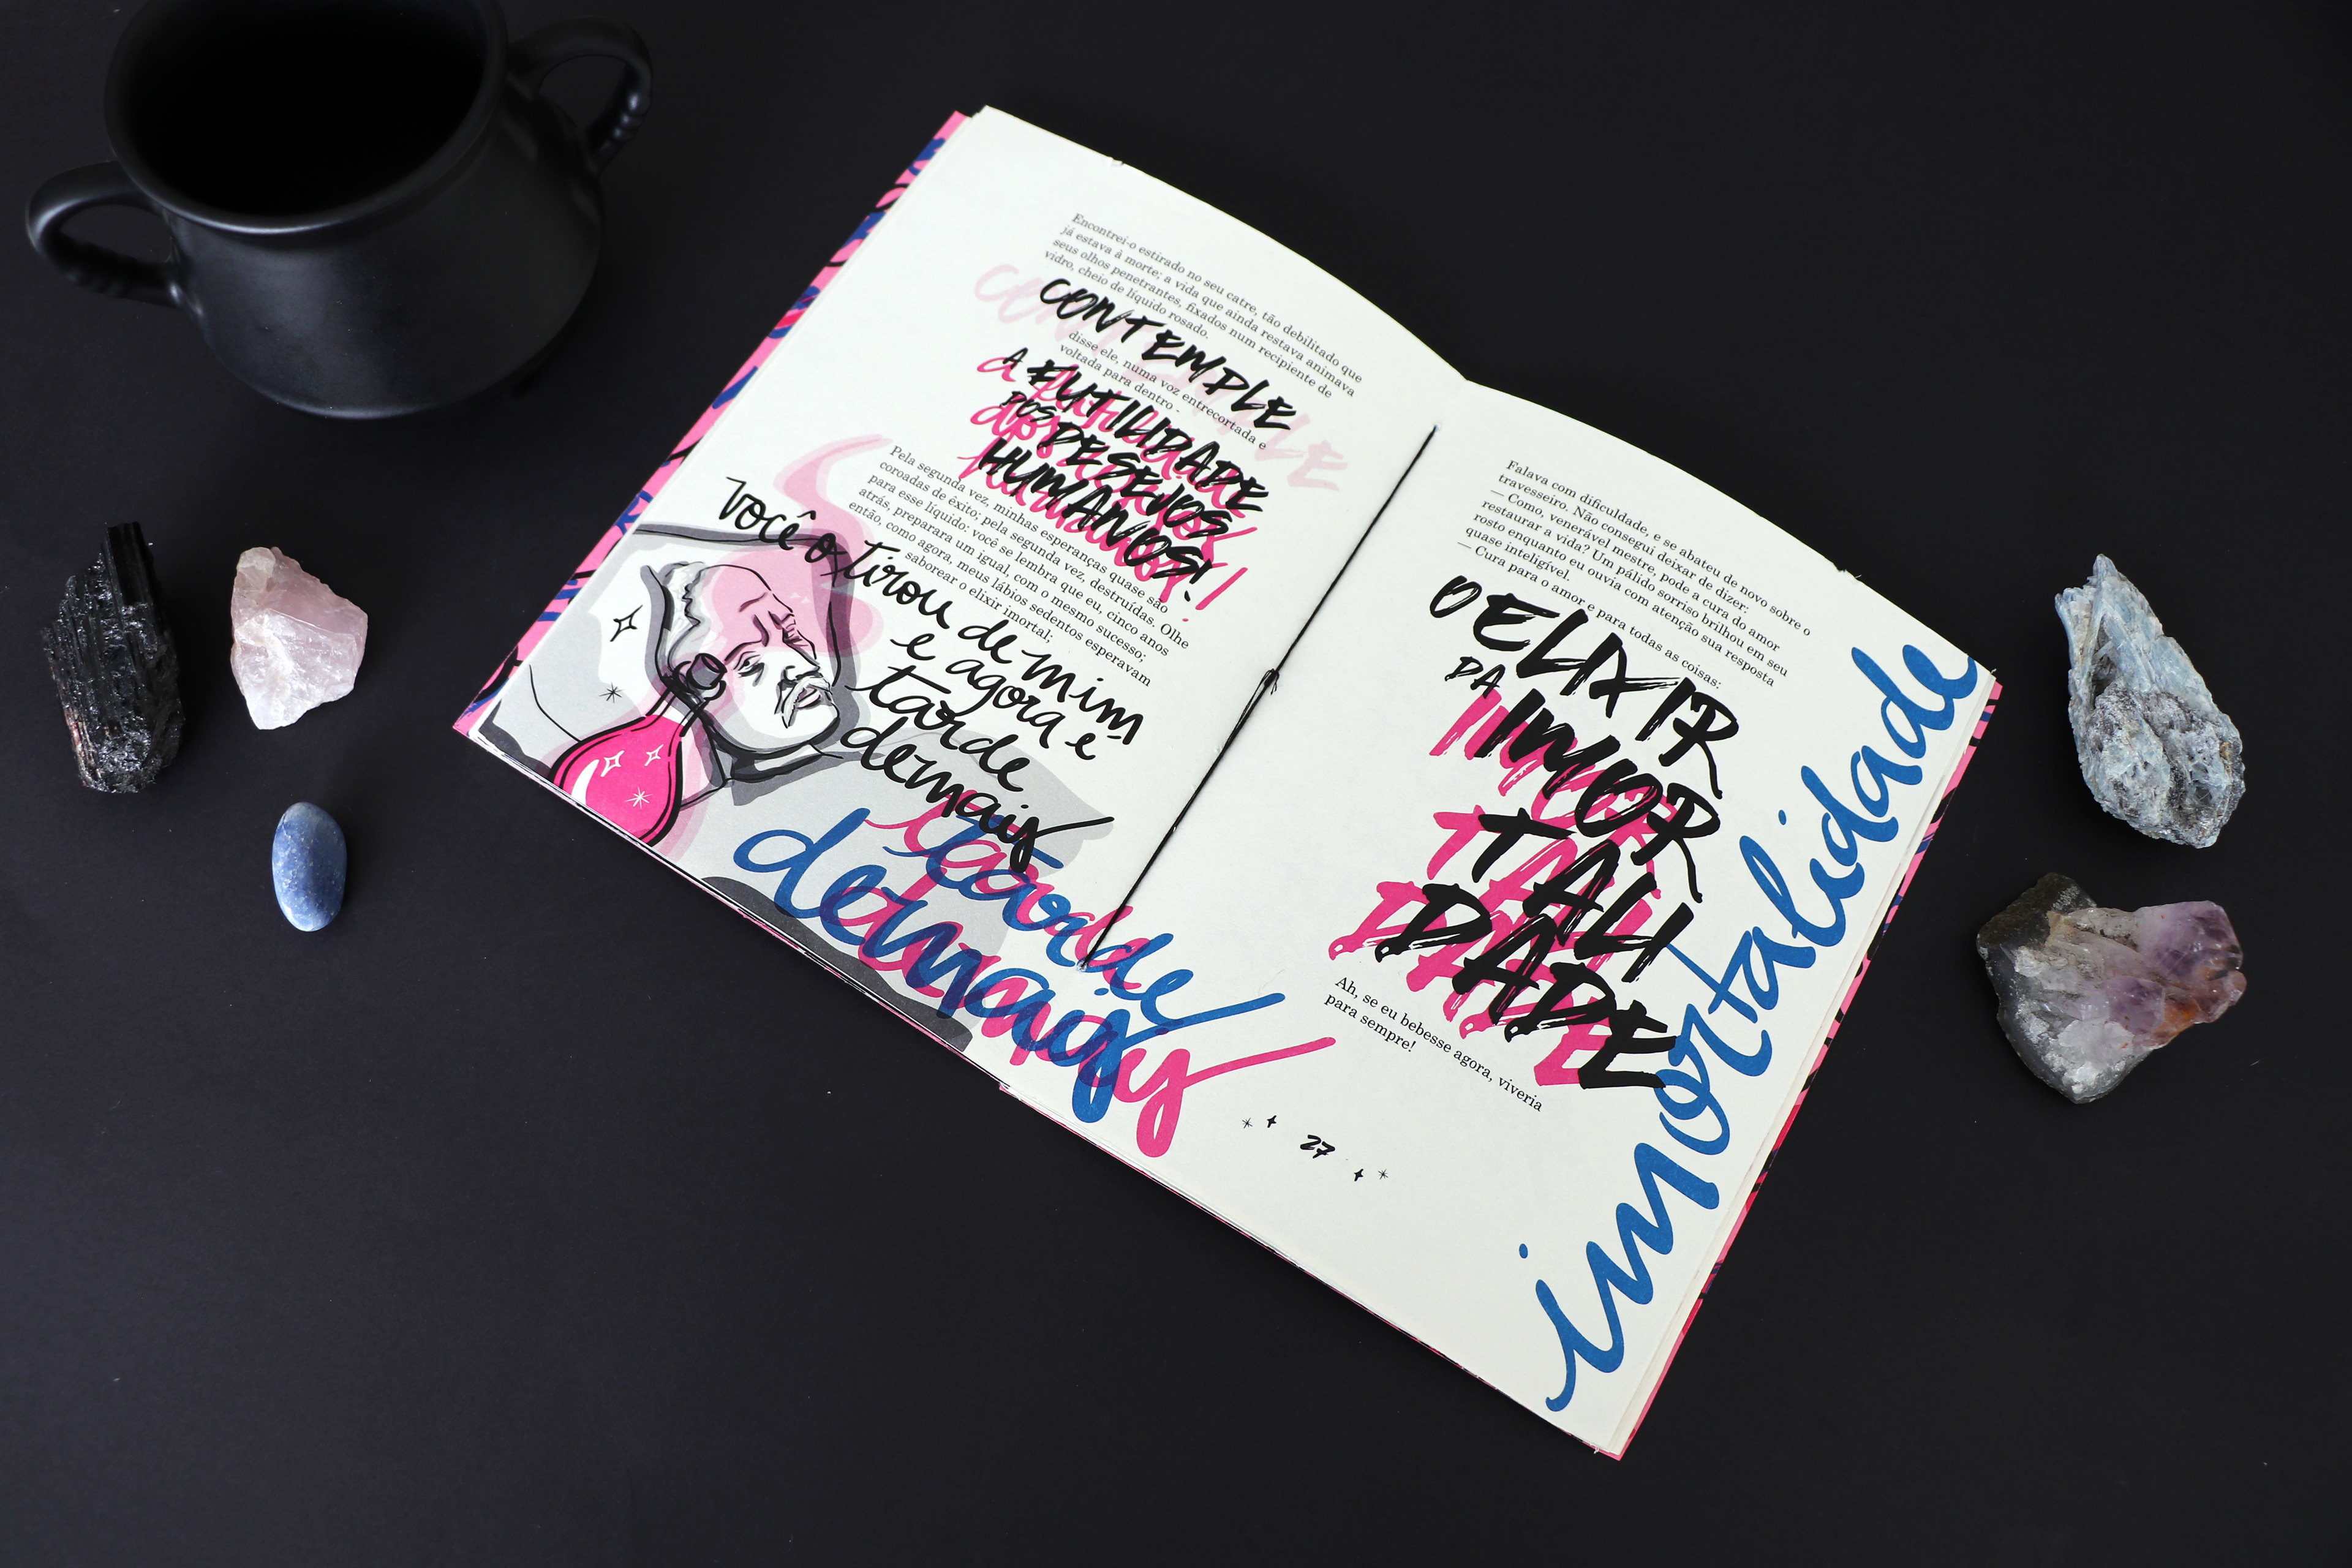 Encontrei-o estirado no seu catre, tão debilitado que
já estava à morte; a vida que ainda restava animava
seus olhos penetrantes, fixados num recipiente de
vidro, cheio de líquido rosado.
CONTEMPLE
CONTEMPLE
disse ele, numa voz entrecortada e
voltada para dentro -
A FUTILIDADE
DOS DESEJOS
HUMANOS!
a futilidade
dos desejos
humanos!
Pela segunda vez, minhas esperanças quase são
coroadas de êxito; pela segunda vez, destruídas. Olhe
para esse líquido: você se lembra que eu, cinco anos
atrás, preparara um igual, com o mesmo sucesso;
então, como agora, meus lábios sedentos esperavam
saborear o elixir imortal;
você o tirou de mim
e agora é
tarde
demais
tarde
demais
tarde
demais
Falava com dificuldade, e se abateu de novo sobre o
travesseiro. Não consegui deixar de dizer:
— Como, venerável mestre, pode a cura do amor
restaurar a vida? Um pálido sorriso brilhou em seu
rosto enquanto eu ouvia com atenção sua resposta
quase inteligível.
— Cura para o amor e para todas as coisas:
O ELIXIR
DA IMOR
TALI
DADE
IMOR
TALI
DADE
imortalidade
Ah, se eu bebesse agora, viveria
para sempre!
27